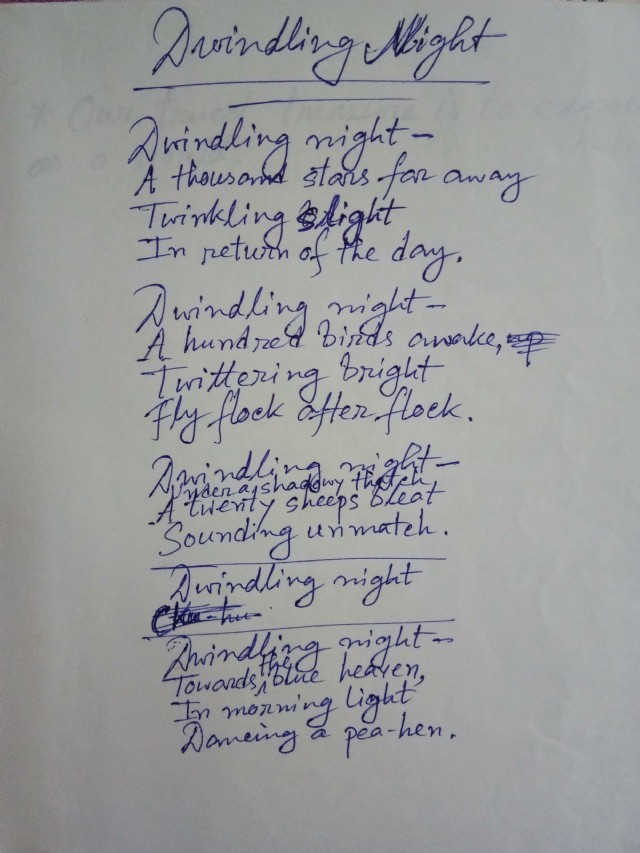 Dwindling Night
* Our truest treasure is to
as a
Dwindling night—
A thousand stars far away
Twinkling slight
In return of the day.
Dwindling night—
A hundred birds awake,
Twittering bright
Fly flock after flock.
Dwindling night—
Under a shadowy thatch
A twenty sheeps bleat
Sounding unmatch.
Dwindling night
Dwindling night—
Towards the blue heaven,
In morning light
Dancing a pea-hen.